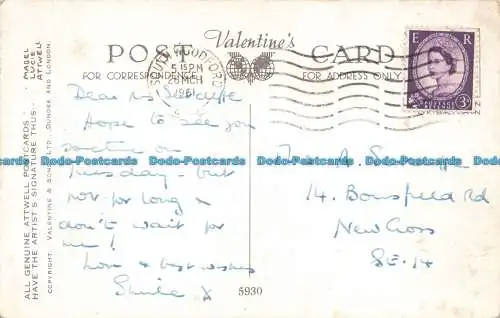 Valentine's
POST CARD
FOR CORRESPONDENCE
FOR ADDRESS ONLY
SOUTH WOODFORD
5 15 PM
MCH
1961
E R
POSTAGE REVENUE
3D
ALL GENUINE ATTWELL POSTCARDS
HAVE THE ARTIST'S SIGNATURE THUS:-
MABEL
LUCIE
ATTWELL
COPYRIGHT. VALENTINE & SONS, LTD., DUNDEE AND LONDON.
Dear
Hope to see you
Tuesday - but
not for long &
don't wait for
me!
Love & best wishes
Sheila X
14. Bousfield Rd
New Cross
SE.14
5930
Dodo-Postcards Dodo-Postcards Dodo-Postcards Dodo-Postcards Dodo-Postcards